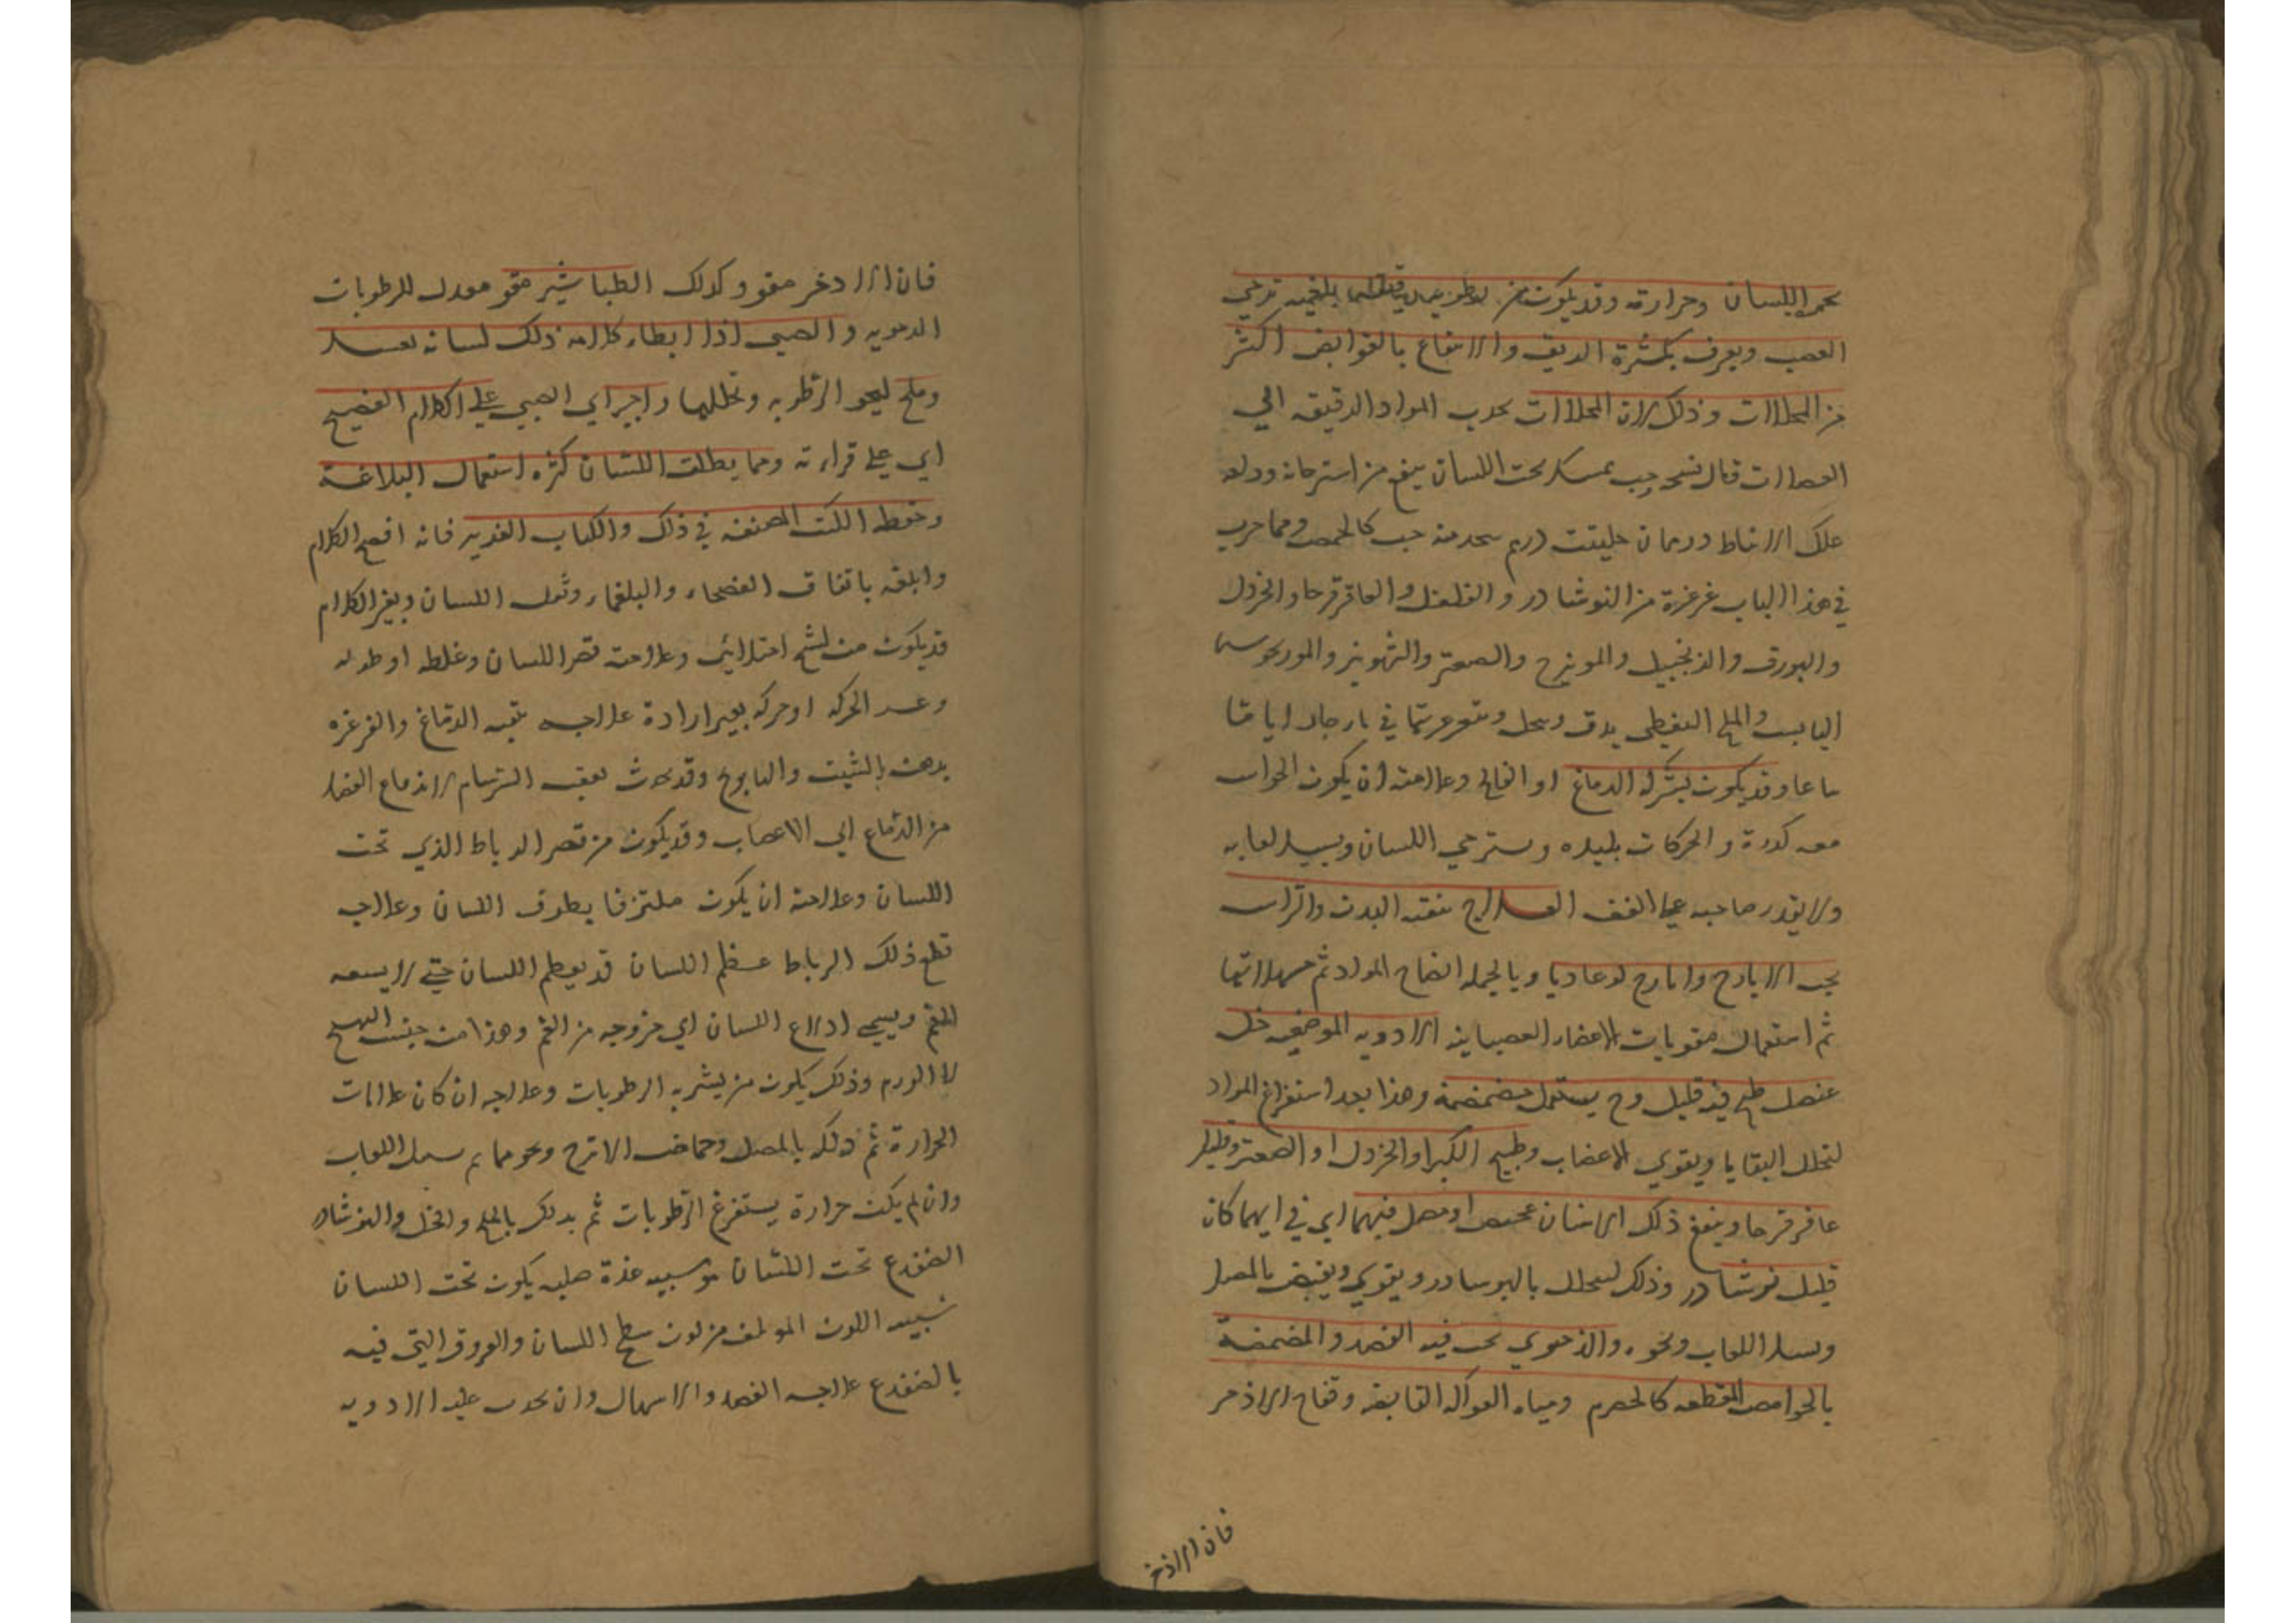 بحمر اللسان وحرارته وقد يكون من رطوبة بلغمية ترخي
العصب ويعرف بكثرة الريق والانتفاع بالقوابض اكثر
من المحللات وذلك لان المحللات تجذب المواد الرقيقه الي
العضلات قال نسخه حب يمسك تحت اللسان ينفع من استرخائه ودلعه
علك الانباط درهمان حلتيت درهم يتخذ منه حب كالحمص ومما جرب
في هذا الباب غرغرة من النوشادر والفلفل والعاقرقرحا والخردل
والبورق والزنجبيل والمويزج والصعتر والشونيز والمرزنجوش
اليابس والملح النفطي يدق وينخل ويتغرغر بها في ايامًا
تباعا وقد يكون بشركة الدماغ او الفالج وعلامته ان يكون الحواس
معه كدرة والحركات بليده ويسترخي اللسان ويسيل لعابه
ولا يقدر صاحبه علي العلاج تنقيه البدن والراس
بحب الايارج وايارج لوغاديا وبالجمله انضاج المواد ثم اسهالها
ثم استعمال مقويات الاعضاء العصبانيه الادويه الموضعيه خل
عنصل طبخ فيه قليل وج يستعمل مضمضة وهذا بعد استفراغ المواد
لتحلل البقايا ويقوي الاعصاب وطبيخ الكبر او الخردل او الصعتر وقليل
عاقرقرحا وينفع ذلك الانسان بمخيض او مصل فيهما اي في ايهما كان
قليل نوشادر وذلك ليحلل بالنوشادر ويقوي ويقبض بالمصل
ويسيل اللعاب ونحوه والدموي يجب فيه الفصد والمضمضة
بالحوامض المقطعه كالحصرم ومياه الفواكه القابضه وفقاح الاذخر
فان الاذخر
فان الادخر مقو وكذلك الطباشير مقو معدل للرطوبات
الدمويه والصبي اذا ابطاء كلامه ذلك لسانه بعسل
وملح ليمحو الرطوبه وتحللها واجبر اي الصبي علي الكلام الفصيح
اي علي قراءته ومما يطلق اللسان كثره استعمال البلاغة
وحفظ الكتب المصنفه في ذلك والكتاب العزيز فانه افصح الكلام
وابلغه باتفاق الفصحاء والبلغاء وثقل اللسان ويغير الكلام
قد يكون من تشنج امتلائي وعلامته قصر اللسان وغلظه او طوله
وعسر الحركه او حركه بغير ارادة علاجه تنقيه الدماغ والغرغره
بدهن الشبت والبابونج وقد يحدث بعقب السرسام لاندفاع الفضل
من الدماغ الي الاعصاب وقد يكون من قصر الرباط الذي تحت
اللسان وعلامته ان يكون ملتزقا بطرف اللسان وعلاجه
قطع ذلك الرباط عظم اللسان قد يعظم اللسان حتي لا يسعه
الفم ويسمي ادلاع اللسان اي خروجه من الفم وهذا من جنس التهيج
لا الورم وذلك يكون من تشربه الرطوبات وعلاجه ان كان علامات
الحرارة ثم دلكه بالمصل وحماض الاترج ونحوهما مما يسيل اللعاب
وان لم يكن حرارة يستفرغ الرطوبات ثم يدلك بالملح والخل والنوشادر
الضفدع تحت اللسان هو شبيه غدة صلبه يكون تحت اللسان
شبيه اللون المولف من لون سطح اللسان والعروق التي فيه
بالضفدع علاجه الفصد والاسهال وان يجعل عليه الادويه